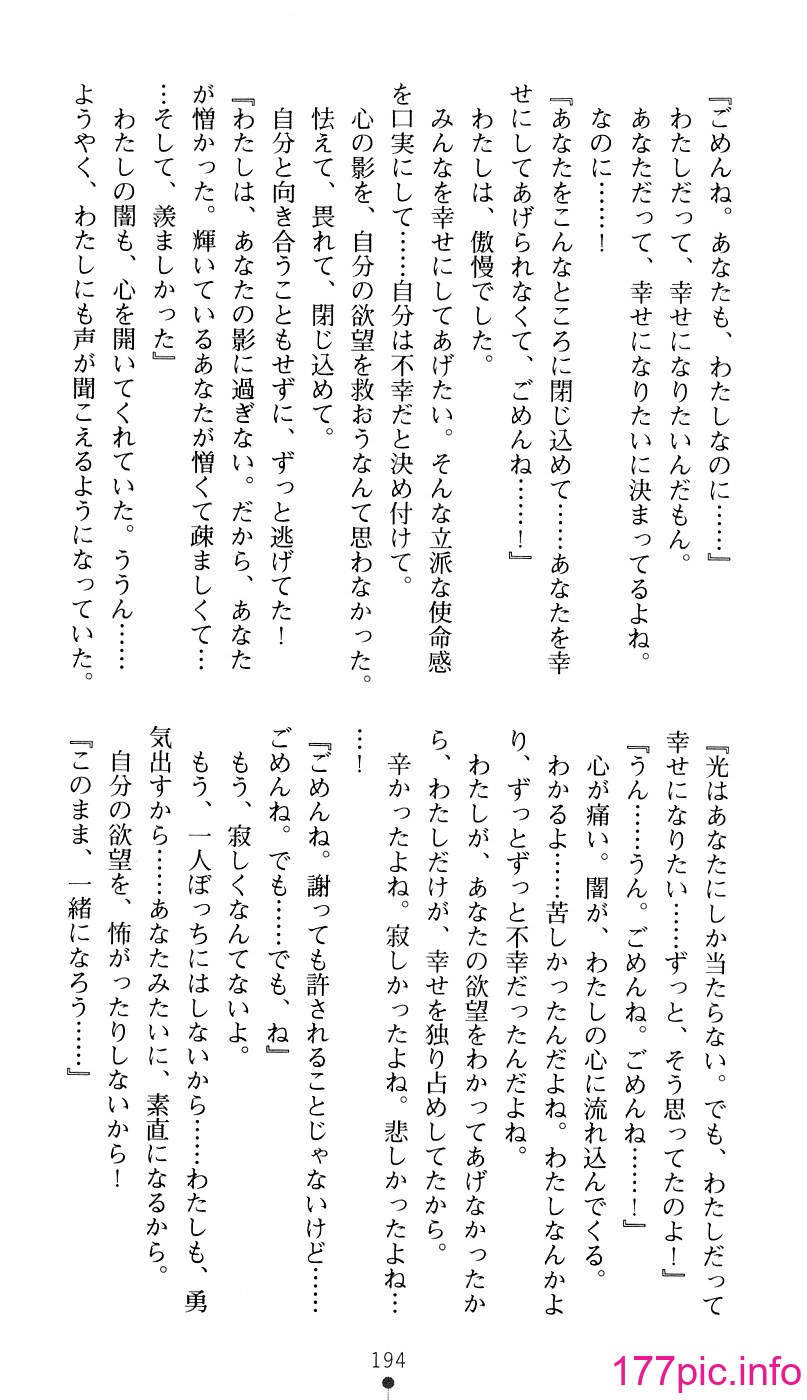 『ごめんね。あなたも、わたしなのに……』
わたしだって、幸せになりたいんだもん。
あなただって、幸せになりたいに決まってるよね。
なのに……！
『あなたをこんなところに閉じ込めて……あなたを幸
せにしてあげられなくて、ごめんね……！』
わたしは、傲慢でした。
みんなを幸せにしてあげたい。そんな立派な使命感
を口実にして……自分は不幸だと決め付けて。
心の影を、自分の欲望を救おうなんて思わなかった。
怯えて、畏れて、閉じ込めて。
自分と向き合うこともせずに、ずっと逃げてた！
『わたしは、あなたの影に過ぎない。だから、あなた
が憎かった。輝いているあなたが憎くて疎ましくて…
…そして、羨ましかった』
わたしの闇も、心を開いてくれていた。ううん……
ようやく、わたしにも声が聞こえるようになっていた。
『光はあなたにしか当たらない。でも、わたしだって
幸せになりたい……ずっと、そう思ってたのよ！』
『うん……うん。ごめんね。ごめんね……！』
心が痛い。闇が、わたしの心に流れ込んでくる。
わかるよ……苦しかったんだよね。わたしなんかよ
り、ずっとずっと不幸だったんだよね。
わたしが、あなたの欲望をわかってあげなかったか
ら、わたしだけが、幸せを独り占めしてたから。
辛かったよね。寂しかったよね。悲しかったよね…
…！
『ごめんね。謝っても許されることじゃないけど……
ごめんね。でも……でも、ね』
もう、寂しくなんてないよ。
もう、一人ぼっちにはしないから……わたしも、勇
気出すから……あなたみたいに、素直になるから。
自分の欲望を、怖がったりしないから！
『このまま、一緒になろう……』
194
177pic.info